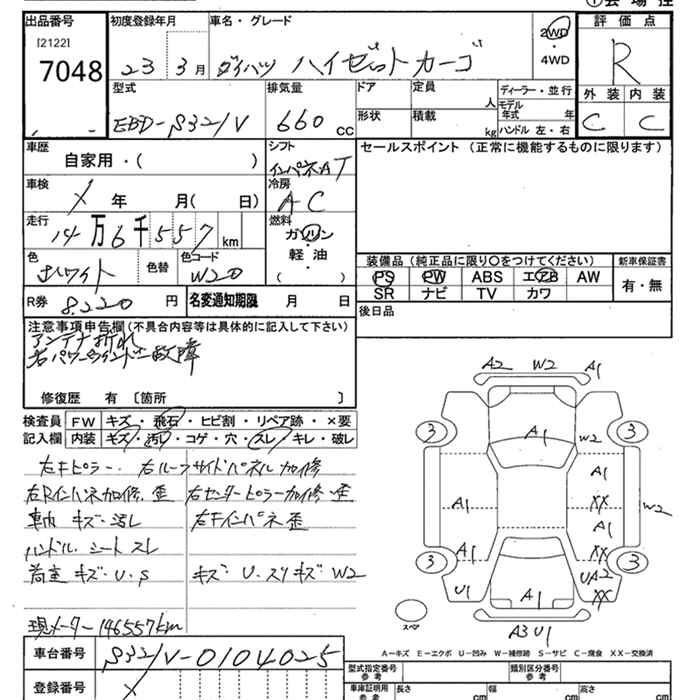 会場控
出品番号
[2122]
7048
初度登録年月
23 3月
車名・グレード
ダイハツ ハイゼットカーゴ
2WD
・
4WD
評価点
R
外装 内装
C C
型式
EBD-S321V
排気量
660 CC
ドア
形状
定員
人
積載
kg
ディーラー・並行
モデル年式 年
ハンドル 左・右
車歴
自家用・( )
シフト
インパネAT
セールスポイント (正常に機能するものに限ります)
車検
X 年 月( 日)
冷房
AC
走行
14万6千557km
燃料
ガソリン
軽・油
( )
色
ホワイト
色替
色コード
W20
装備品 (純正品に限り○をつけてください)
PS PW ABS エアB AW
SR ナビ TV カワ
新車保証書
有・無
R券 8,220 円
名変通知期限 月 日
後日品
注意事項申告欄(不具合内容等は具体的に記入して下さい)
アンテナ折れ
右パワーウィンドー故障
修復歴 有 〔箇所 〕
検査員 FW キズ・飛石・ヒビ割・リペア跡・×要
記入欄 内装 キズ・汚レ・コゲ・穴・スレ・キレ・破レ
左Fピラー、右ルーフサイドパネル加修
右Rインパネ加修、歪 右センターピラー加修・歪
車内 キズ・汚レ 右Fインパネ歪
ハンドル シート スレ
荷室 キズ・U・S キズ U・スリキズ W2
現メーター146557km
A2 W2 A1
3 A1 W2 3
A1 A1 XX W2
A1
3 A1 XX 3
U1 A1 UA2 XX
スペア
A3 U1
A-キズ E-エクボ U-凹み W-補修跡 S-サビ C-腐食 XX-交換済
車台番号 S321V-0104025
登録番号 X
型式指定番号
参考
類別区分番号
参考
車庫証明用
参考
長さ cm 幅 cm 高さ cm